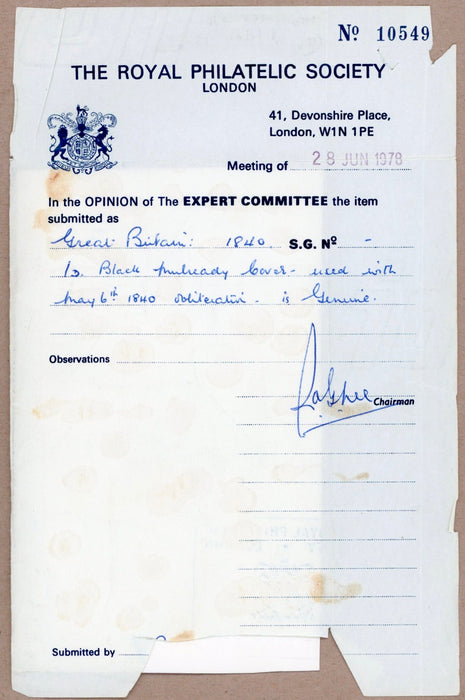 Nº 10549
THE ROYAL PHILATELIC SOCIETY
LONDON
41, Devonshire Place,
London, W1N 1PE
Meeting of 28 JUN 1978
In the OPINION of The EXPERT COMMITTEE the item
submitted as
Great Britain: 1840. S.G. Nº -
1d. Black Mulready Cover - used with
May 6th 1840 obliteration - is Genuine.
Observations
Chairman
Submitted by